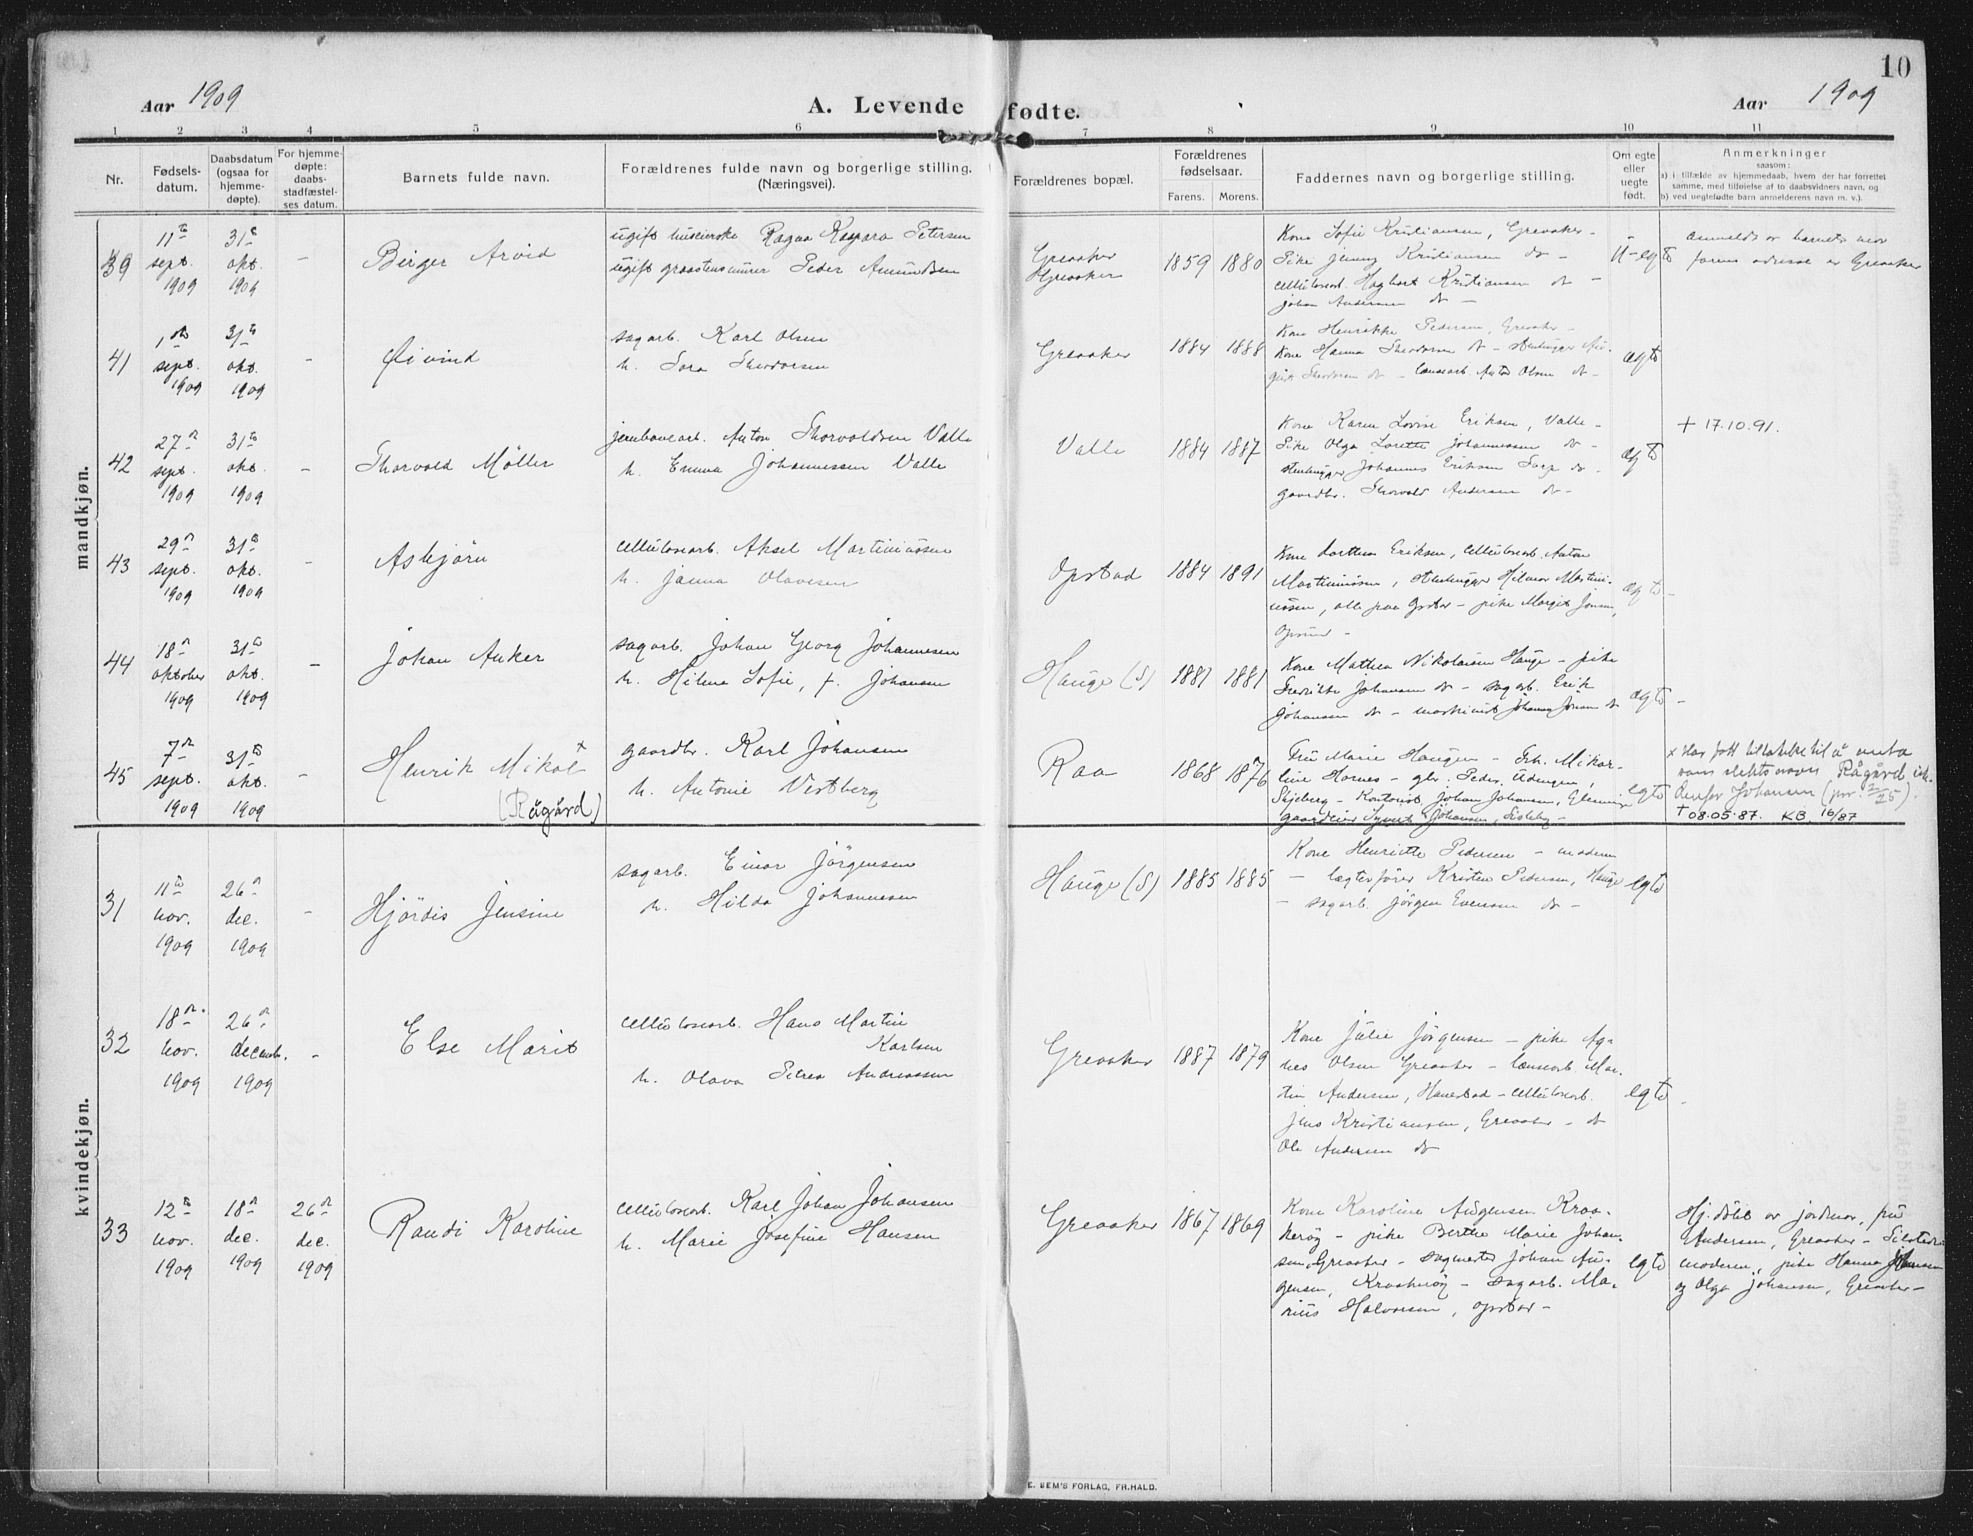 10
Aar 1909
A. Levende fødte.
Aar 1909
1 2 3 4 5 6 7 8 9 10 11
Nr.
Fødsels-
datum.
Daabsdatum
(ogsaa for
hjemme-
døpte).
For hjemme-
døpte:
daabs-
stadfæstel-
ses datum.
Barnets fulde navn.
Forældrenes fulde navn og borgerlige stilling.
(Næringsvei).
Forældrenes bopæl.
Forældrenes
fødselsaar.
Farens. Morens.
Faddernes navn og borgerlige stilling.
Om egte
eller
uegte
født.
Anmerkninger
saasom:
a) i tilfælde av hjemmedaab, hvem der har forrettet
samme, med tilføielse af to daabsvidners navn, og
b) ved uegtefødte barn anmelderens navn m. v.).
mandkjøn.
39
11te
sept.
1909
31te
okt.
1909
-
Birger Arvid
ugift huseierske Ragna Kaspara Petersen
ugift graastensmurer Peder Amundsen
Greaaker
Greaaker
1859 1880
Kone Sofie Kristiansen, Greaaker -
Pike Jenny Kristiansen do -
cellulosearb. Hagbart Kristiansen do -
Johan Andersen do -
U-egte
anmeldt av barnets mor
farens adresse er Greaaker
41
1ste
sept.
1909
31te
okt.
1909
-
Øivind
sagarb. Karl Olsen
h. Sara Theodorsen
Greaaker
1884 1888
Kone Henrikke Pedersen, Greaaker -
Kone Hanna Theodorsen do - stenhugger
Theodorsen do - lænsearb. Anton Olsen do -
egte
42
27de
sept.
1909
31te
okt.
1909
-
Thorvald Möller
jernbanearb. Anton Thorvaldsen Valle
h. Emma Johannessen Valle
Valle
1884 1887
Kone Karen Lovise Eriksen, Valle -
Pike Olga Lorette Johannessen do -
stenhugger Johannes Eriksen Sarp do -
gaardbr. Thorvald Andersen do -
egte
+ 17.10.91.
43
29de
sept.
1909
31te
okt.
1909
-
Asbjörn
cellulosearb. Aksel Martiniussen
h. Janna Olavesen
Opstad
1884 1891
Kone Lorthea Eriksen, cellulosearb. Anton
Martiniussen, stenhugger Hilmar Martini-
ussen, alle paa Opstad - pike Margit Jensen,
Opsund -
egte -
44
18de
oktober
1909
31te
okt.
1909
-
Johan Anker
sagarb. Johan Georg Johannesen
h. Hilma Sofie, f. Johansen
Hauge (S)
1881 1881
Kone Mathea Nikolaisen Hauge - pike
Fredrikke Johansen do - sagarb. Erik
Johansen do - maskinist Johannes Jensen do
egte -
45
7de
sept.
1909
31te
okt.
1909
-
Henrik Mikal x
(Rågård)
gaardbr. Karl Johansen
h. Antonie Vestberg
Raa
1868 1876
Fru Marie Haugen - Frk. Mikar-
line Hornes - gbr. Peder Udengen,
Skjeberg - Kontorist Johan Johansen, Glemminge
gaardeier Johansen,
egte
x Har fått tillatelse til å anta
som slektsnavn Rågård istf.
Johansen (pnr. 2/25).
† 08.05.87. KB. 16/87
kvindekjøn.
31
11te
nov.
1909
26de
dec.
1909
-
Hjördis Jensine
sagarb. Einar Jörgensen
h. Hilda Johannesen
Hauge (S)
1885 1885
Kone Henriette Pedersen - moderen
- lægterfører Kristen Pedersen, Hauge
- sagarb. Jörgen Evensen do -
egte
32
18de
nov.
1909
26de
decemb.
1909
-
Else Marit
cellulosearb. Hans Martin
Karlsen
h. Olava Petrea Andreassen
Greaaker
1887 1879
Kone Julie Jörgensen - pike Ag-
nes Olsen Greaaker - lænsearb. Mar-
tin Andersen, Hanestad - cellulosearb.
Jens Kristiansen, Greaaker - do
Ole Andersen do
egte -
33
12te
nov.
1909
18de
dec.
1909
26de
dec.
1909
Randi Karoline
cellulosearb. Karl Johan Johansen
h. Marie Josefine Hansen
Greaaker
1867 1869
Kone Karoline Augensen Kraa-
keröy - pike Berthe Marie Johan-
sen, Greaaker - sagmester Johan Au-
gensen, Kraakeröy - sagarb. Ma-
rius Halvorsen, Opstad -
egte
Hj. döbt av jordmor, fru
Andersen, Greaaker - Tilstede:
moderen, pike Hanna Johansen
og Olga Johansen, Greaaker -
E. SEM'S FORLAG, FR.HALD.